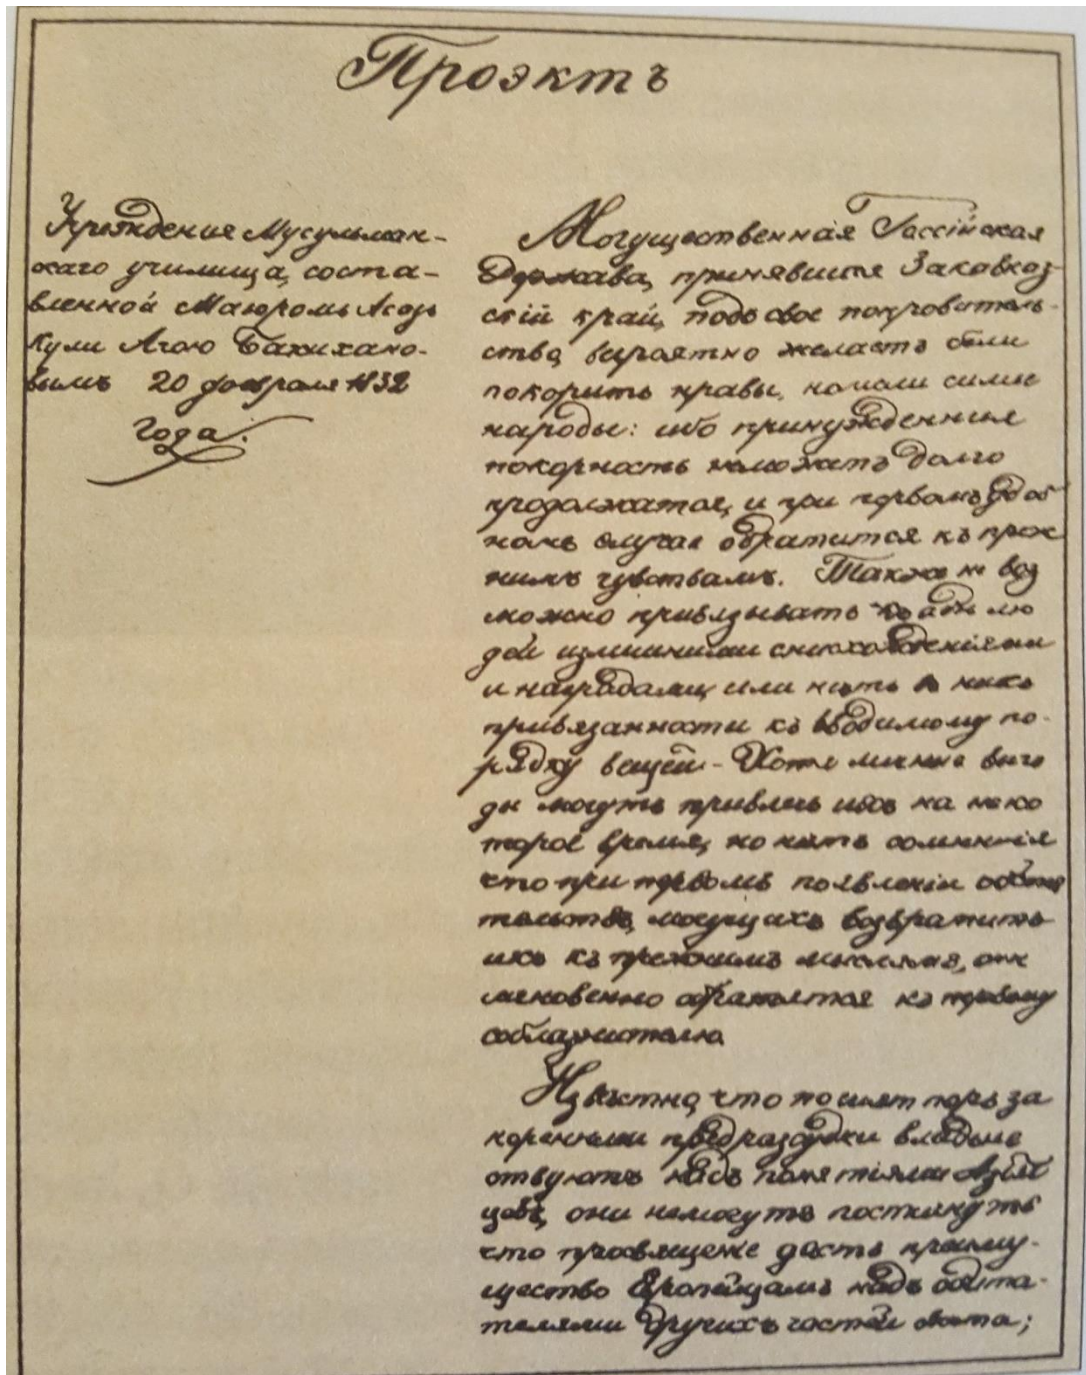 Проэктъ
Учрежденія Мусульман-
скаго училища, соста-
вленной Маіоромъ Аббасъ
Кули Агою Бакихано-
вымъ 20 февраля 1832
года.
Могущественная Россійская
Держава, принявшая Закавказ-
скій край, подъ свое покровитель-
ство, вѣроятно желаетъ болѣе
покорить нравы, нежели самые
народы: ибо принужденная
покорность неможетъ долго
продолжатся, и при первомъ удоб
номъ случаѣ обратится къ преж
нимъ чувствамъ. Также не воз
можно привязывать къ себѣ лю
дей излишними снисхожденіями
и наградами, если нѣтъ въ нихъ
привязанности къ вводимому по-
рядку вещей - Хотя личные выго
ды могутъ привлечь ихъ на неко
торое время, но нѣтъ сомненія
что при первомъ появленіи обстоя
тельствъ, могущихъ возвратить
ихъ къ прежнимъ мыслямъ, они
мгновенно обратятся къ первому
соблазнителю
Извѣстно, что по сіе поръ за
коренными предразсудки владыче
ствуютъ надъ понятіями Азіят
цовъ, они немогутъ постигнуть
что просвещеніе даетъ преиму-
щество Европейцамъ надъ обита-
телями другихъ частей свѣта;